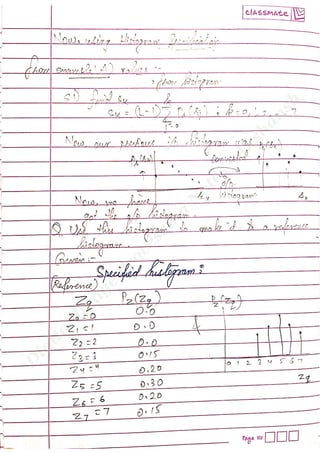 classmate
Now, using Histogram Specification
from example 1) values :-
from histogram
S1) find Sk
Sk = (L-1) Σ Pr(rj) ; k=0,1,... 7
j=0
Now, our previous i/p histogram was
converted to o/p histogram
Now, we have
got the o/p histogram.
Q. Use this histogram to make it to a reference
histogram.
Given :-
Specified histogram :
(Reference)
Zq Pz(Zq) Pz(Zq)
Z0 = 0 0.0
Z1 = 1 0.0
Z2 = 2 0.0
Z3 = 3 0.15
Z4 = 4 0.20
Z5 = 5 0.30
Z6 = 6 0.20
Z7 = 7 0.15
0 1 2 3 4 5 6 7
Zq
Page no